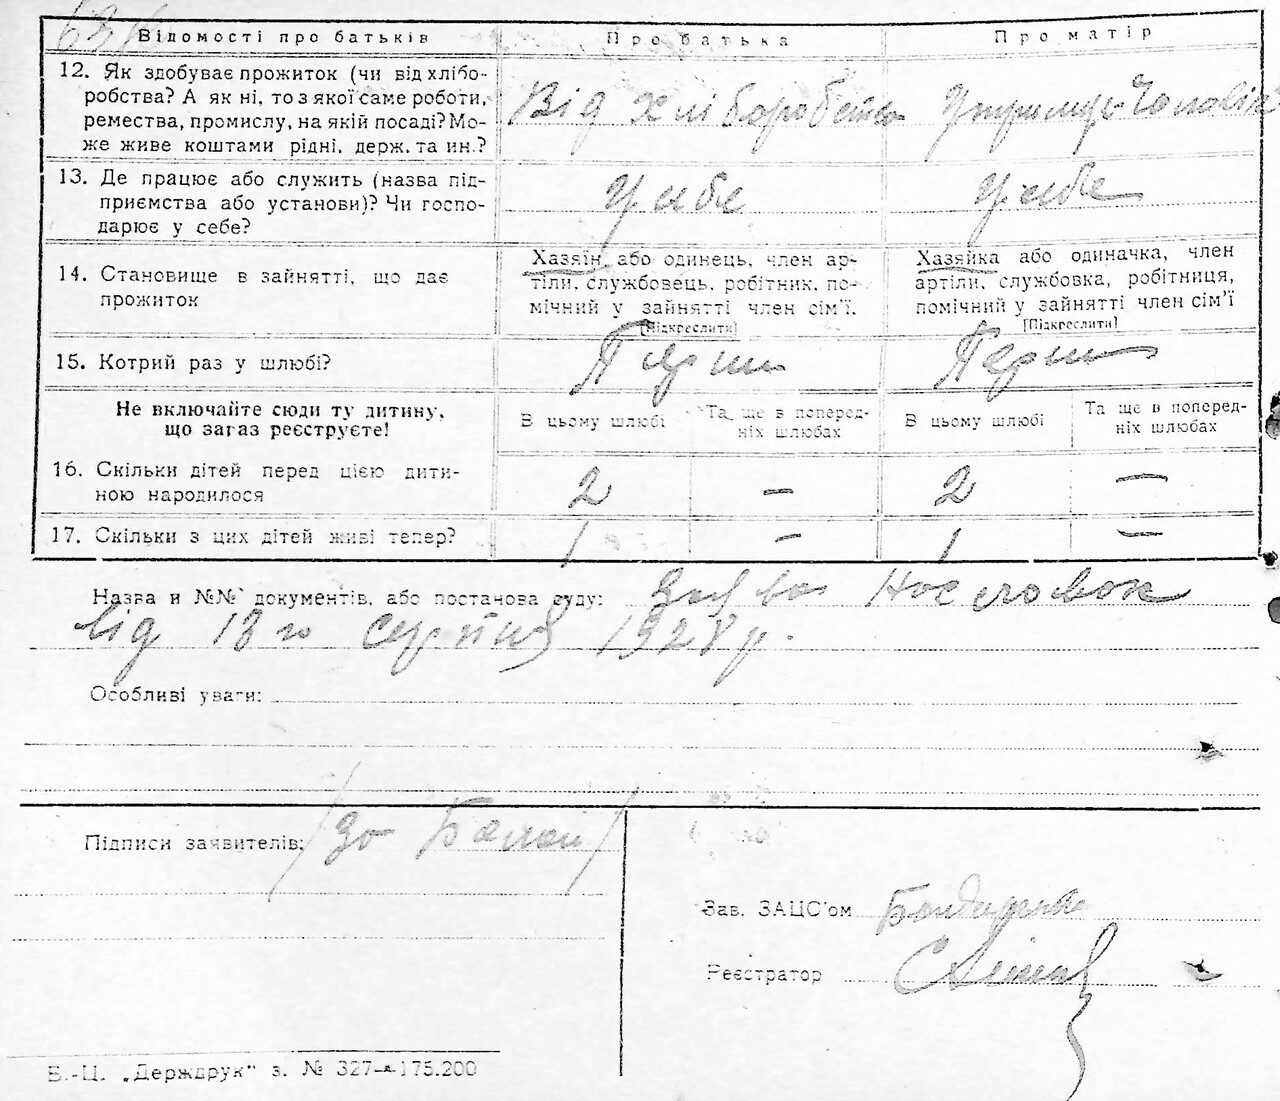 Відомості про батьків Про батька Про матір
12. Як здобуває прожиток (чи від хлібо-
робства? А як ні, то з якої саме роботи,
ремества, промислу, на якій посаді? Мо-
же живе коштами рідні, держ. та ин.?
Від хліборобства
13. Де працює або служить (назва під-
приємства або установи)? Чи госпо-
дарює у себе?
У себе У себе
14. Становище в зайнятті, що дає
прожиток
Хазяїн або одинець, член ар-
тіли, службовець, робітник, по-
мічний у зайнятті член сім'ї.
[Підкреслити]
Хазяйка або одиначка, член
артіли, службовка, робітниця,
помічний у зайнятті член сім'ї
[Підкреслити]
15. Котрий раз у шлюбі?
Перши Перши
Не включайте сюди ту дитину,
що зараз реєструєте!
В цьому шлюбі
Та ще в поперед-
ніх шлюбах
В цьому шлюбі
Та ще в поперед-
ніх шлюбах
16. Скільки дітей перед цією дити-
ною народилося
2 — 2 —
17. Скільки з цих дітей живі тепер? 1 — 1 —
Назва и №№ документів, або постанова суду:
від 13го серпня 1928 р.
Особливі уваги:
Підписи заявителів:
Зав. ЗАЦС'ом Бондаренко
Реєстратор
Б.-Ц. „Держдрук" з. № 327-А-175.200